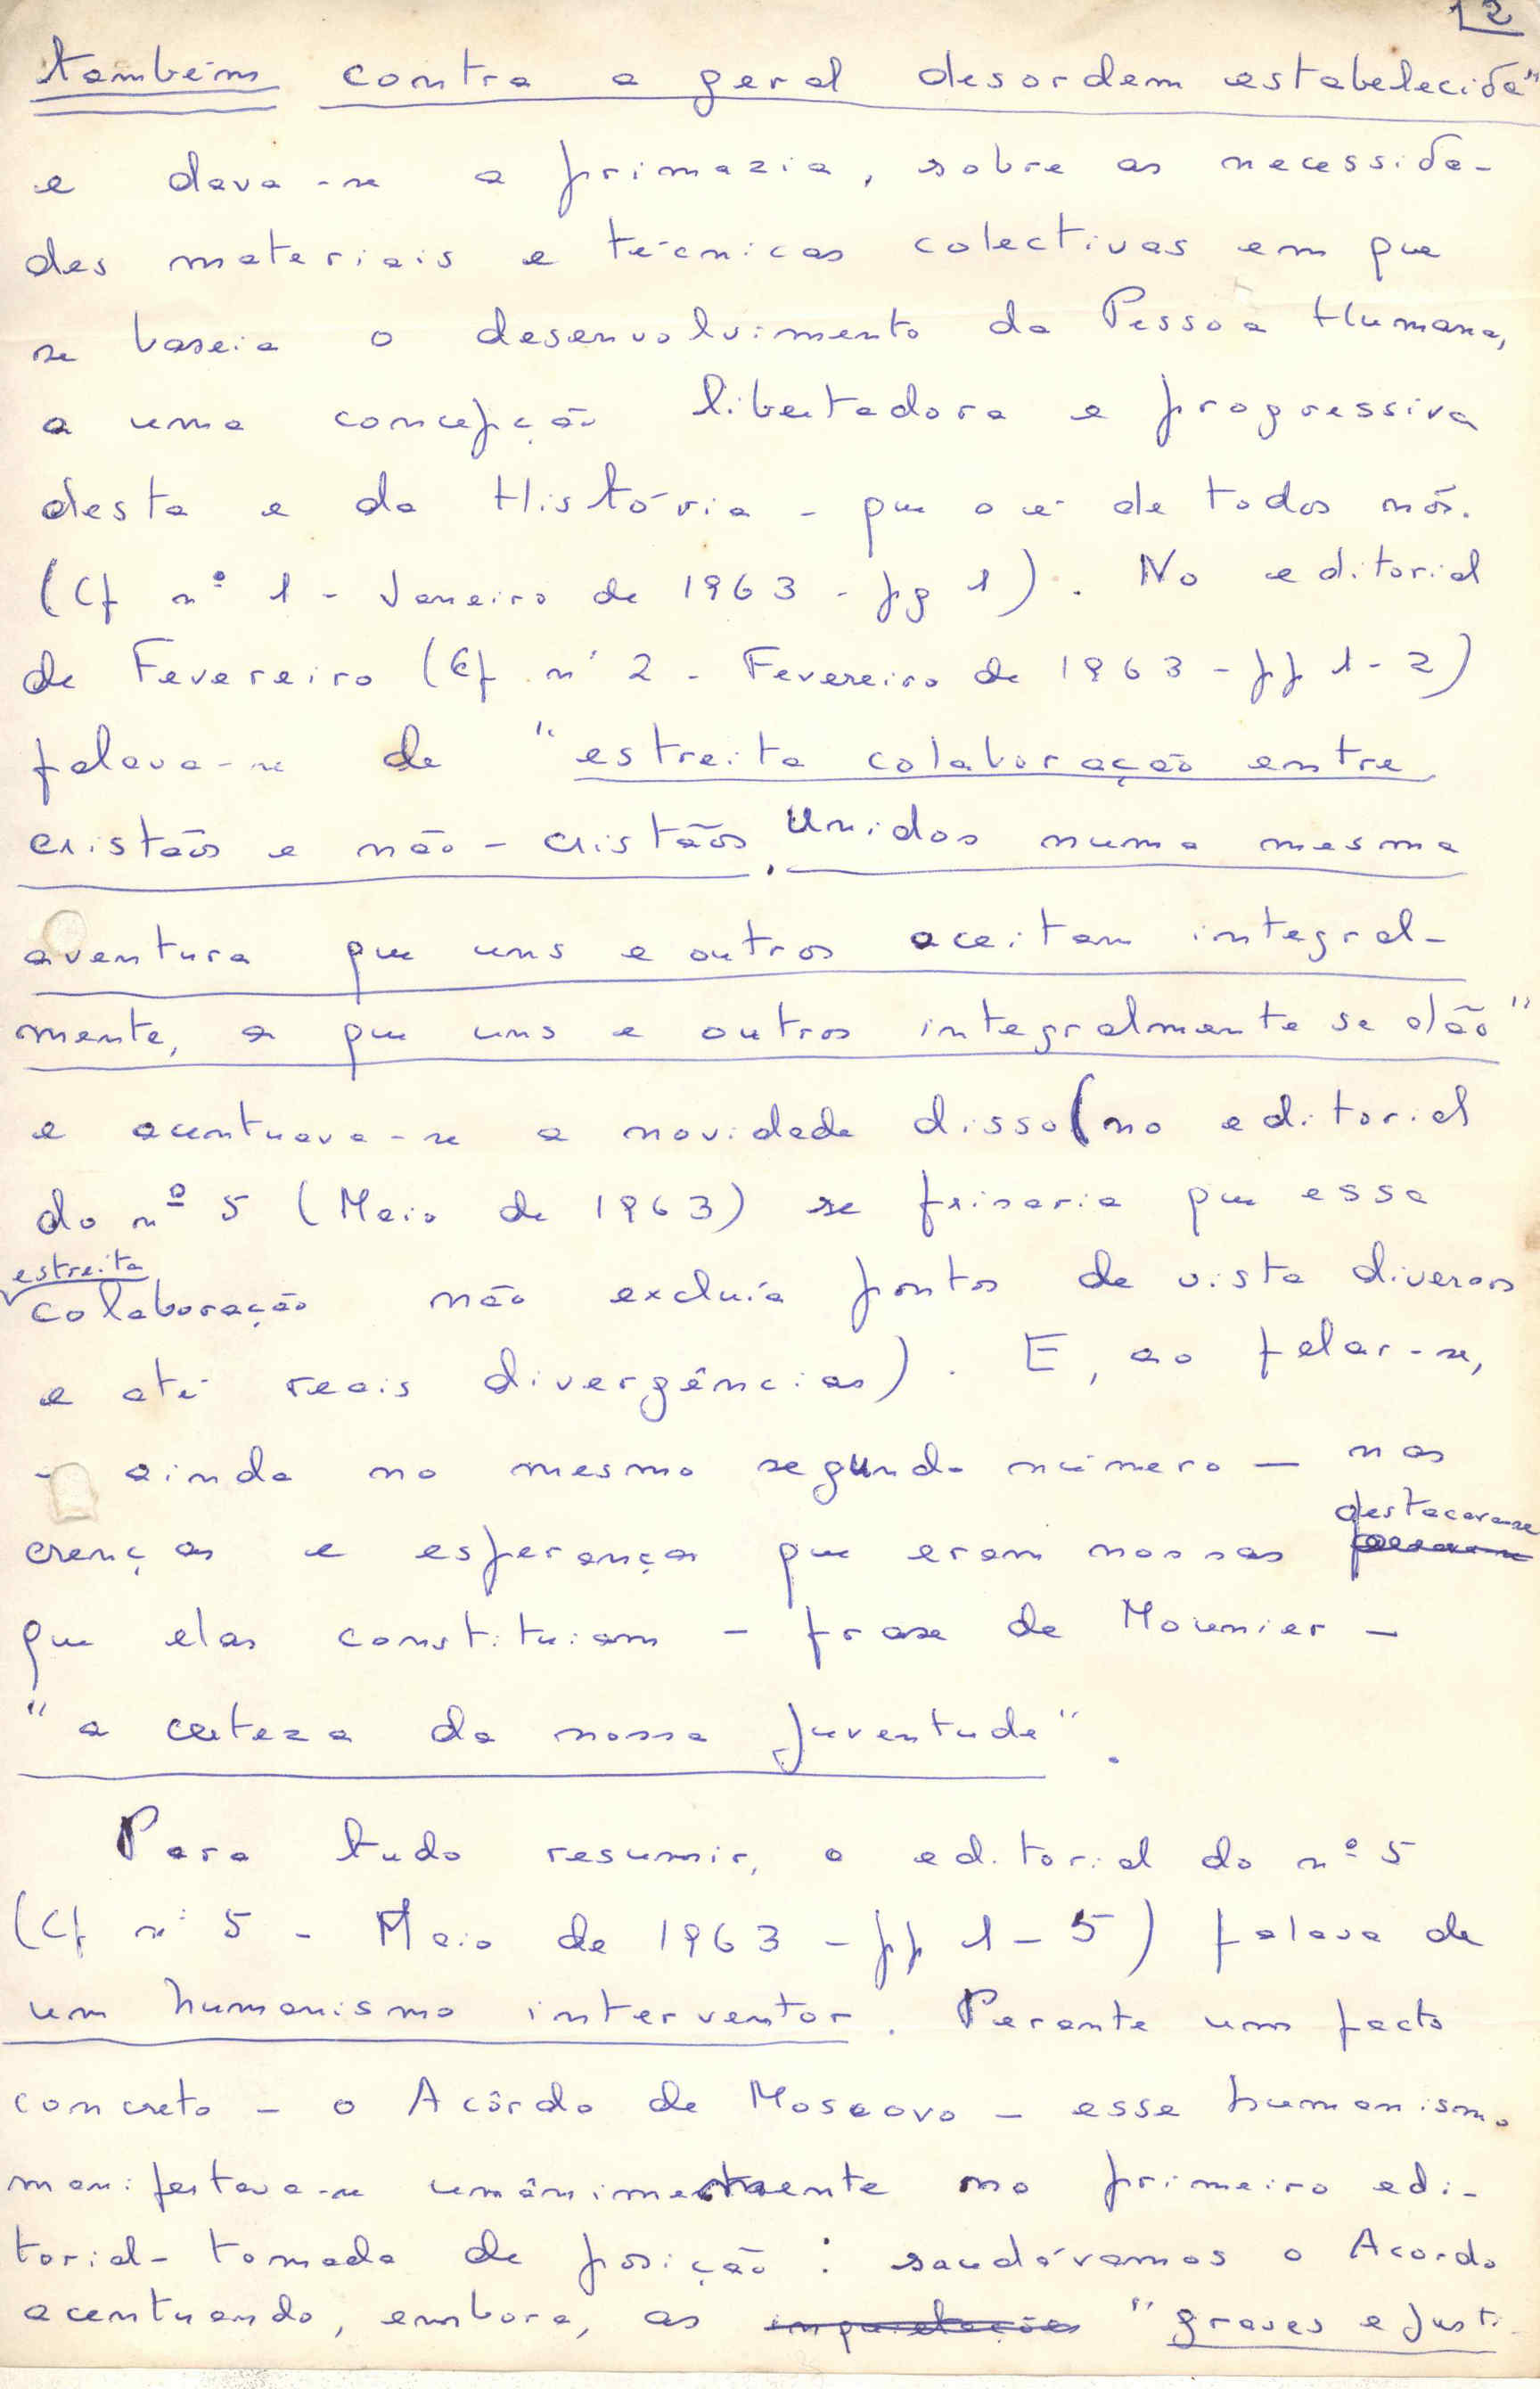 12
também contra a geral desordem estabelecida"
e dava-se a primazia, sobre as necessida-
des materiais e técnicas colectivas em que
se baseia o desenvolvimento da Pessoa Humana,
a uma concepção libertadora e progressiva
desta e da História - que o é de todos nós.
(Cf nº 1 - Janeiro de 1963 - pg 1). No editorial
de Fevereiro (Cf nº 2 - Fevereiro de 1963 - pp 1-2)
falava-se de "estreita colaboração entre
cristãos e não-cristãos, unidos numa mesma
aventura que uns e outros aceitam integral-
mente, a que uns e outros integralmente se dão"
e acentuava-se a novidade disso (no editorial
do nº 5 (Maio de 1963) se frisaria que essa
estreita
colaboração não excluía pontos de vista diversos
e até reais divergências). E, ao falar-se,
- ainda no mesmo segundo número - nas
destacava-se
crenças e esperanças que eram nossas
que elas constituiam - frase de Mounier -
"a certeza da nossa juventude".
Para tudo resumir, o editorial do nº 5
(Cf nº 5 - Maio de 1963 - pp 1-5) falava de
um humanismo interventor. Perante um facto
concreto - o Acôrdo de Moscovo - esse humanismo
manifestava-se unânimemente no primeiro edi-
torial-tomada de posição: saudávamos o Acordo
acentuando, embora, as inquietações "graves e justi-